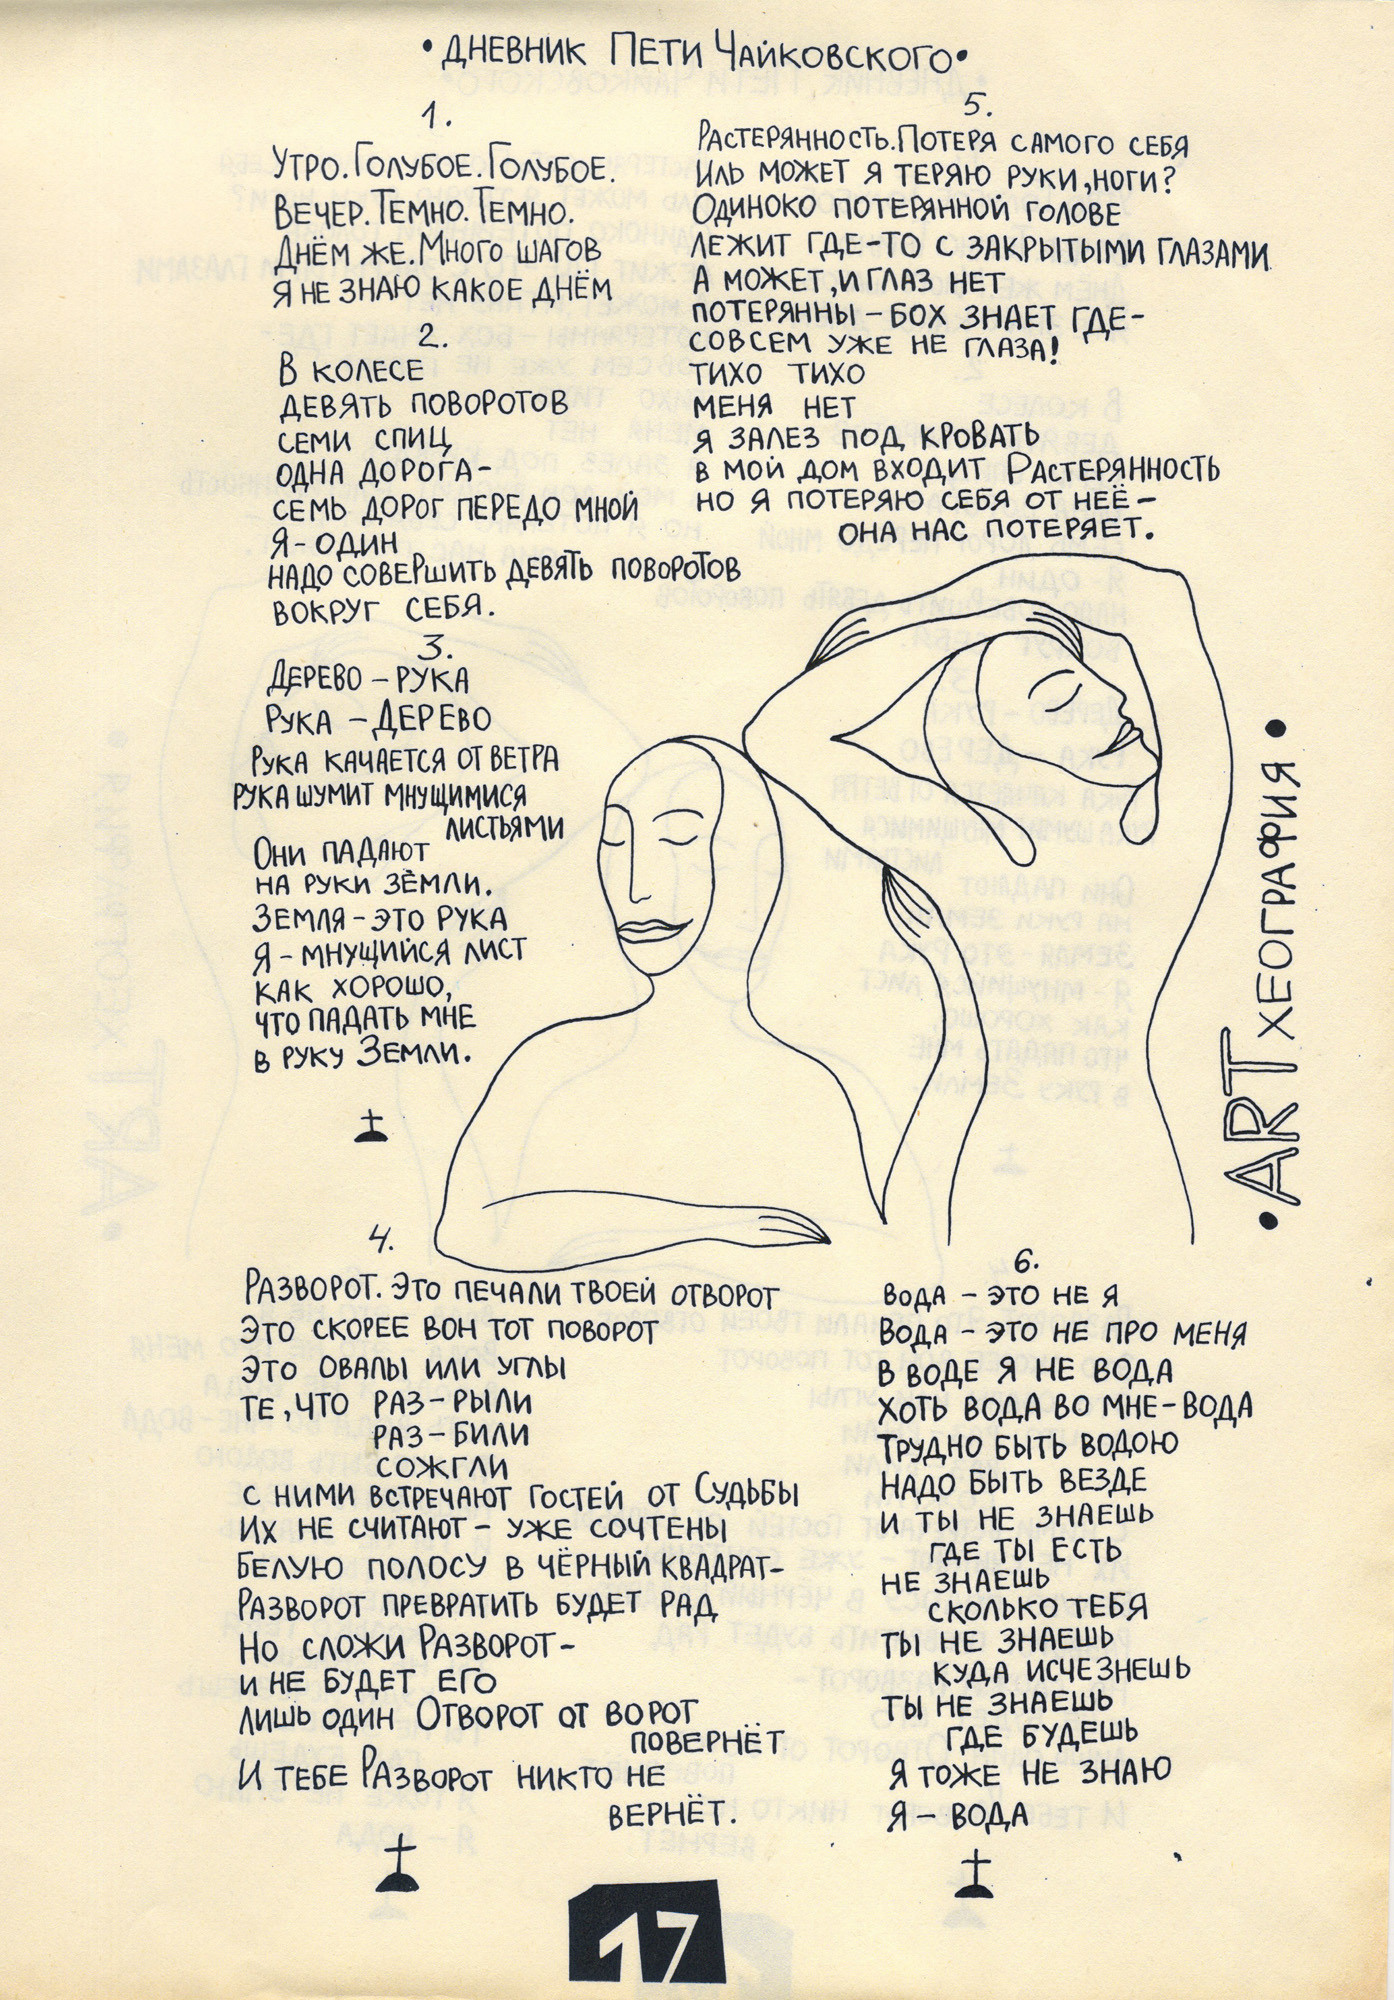 •ДНЕВНИК ПЕТИ ЧАЙКОВСКОГО•
1.
УТРО. ГОЛУБОЕ. ГОЛУБОЕ.
ВЕЧЕР. ТЕМНО. ТЕМНО.
ДНЁМ ЖЕ. МНОГО ШАГОВ
Я НЕ ЗНАЮ КАКОЕ ДНЁМ
2.
В КОЛЕСЕ
ДЕВЯТЬ ПОВОРОТОВ
СЕМИ СПИЦ
ОДНА ДОРОГА-
СЕМЬ ДОРОГ ПЕРЕДО МНОЙ
Я-ОДИН
НАДО СОВЕРШИТЬ ДЕВЯТЬ ПОВОРОТОВ
ВОКРУГ СЕБЯ.
3.
ДЕРЕВО – РУКА
РУКА – ДЕРЕВО
РУКА КАЧАЕТСЯ ОТ ВЕТРА
РУКА ШУМИТ МНУЩИМИСЯ
ЛИСТЬЯМИ
ОНИ ПАДАЮТ
НА РУКИ ЗЕМЛИ.
ЗЕМЛЯ – ЭТО РУКА
Я – МНУЩИЙСЯ ЛИСТ
КАК ХОРОШО,
ЧТО ПАДАТЬ МНЕ
В РУКУ ЗЕМЛИ.
4.
РАЗВОРОТ. ЭТО ПЕЧАЛИ ТВОЕЙ ОТВОРОТ
ЭТО СКОРЕЕ ВОН ТОТ ПОВОРОТ
ЭТО ОВАЛЫ ИЛИ УГЛЫ
ТЕ, ЧТО РАЗ-РЫЛИ
РАЗ-БИЛИ
СОЖГЛИ
С НИМИ ВСТРЕЧАЮТ ГОСТЕЙ ОТ СУДЬБЫ
ИХ НЕ СЧИТАЮТ – УЖЕ СОЧТЕНЫ
БЕЛУЮ ПОЛОСУ В ЧЁРНЫЙ КВАДРАТ-
РАЗВОРОТ ПРЕВРАТИТЬ БУДЕТ РАД
НО СЛОЖИ РАЗВОРОТ-
И НЕ БУДЕТ ЕГО
ЛИШЬ ОДИН ОТВОРОТ ОТ ВОРОТ
ПОВЕРНЁТ
И ТЕБЕ РАЗВОРОТ НИКТО НЕ
ВЕРНЁТ.
5.
РАСТЕРЯННОСТЬ. ПОТЕРЯ САМОГО СЕБЯ
ИЛЬ МОЖЕТ Я ТЕРЯЮ РУКИ, НОГИ?
ОДИНОКО ПОТЕРЯННОЙ ГОЛОВЕ
ЛЕЖИТ ГДЕ-ТО С ЗАКРЫТЫМИ ГЛАЗАМИ
А МОЖЕТ, И ГЛАЗ НЕТ
ПОТЕРЯННЫ – БОХ ЗНАЕТ ГДЕ-
СОВСЕМ УЖЕ НЕ ГЛАЗА!
ТИХО ТИХО
МЕНЯ НЕТ
Я ЗАЛЕЗ ПОД КРОВАТЬ
В МОЙ ДОМ ВХОДИТ РАСТЕРЯННОСТЬ
НО Я ПОТЕРЯЮ СЕБЯ ОТ НЕЁ –
ОНА НАС ПОТЕРЯЕТ.
•ART ХЕОГРАФИЯ•
6.
ВОДА – ЭТО НЕ Я
ВОДА – ЭТО НЕ ПРО МЕНЯ
В ВОДЕ Я НЕ ВОДА
ХОТЬ ВОДА ВО МНЕ-ВОДА
ТРУДНО БЫТЬ ВОДОЮ
НАДО БЫТЬ ВЕЗДЕ
И ТЫ НЕ ЗНАЕШЬ
ГДЕ ТЫ ЕСТЬ
НЕ ЗНАЕШЬ
СКОЛЬКО ТЕБЯ
ТЫ НЕ ЗНАЕШЬ
КУДА ИСЧЕЗНЕШЬ
ТЫ НЕ ЗНАЕШЬ
ГДЕ БУДЕШЬ
Я ТОЖЕ НЕ ЗНАЮ
Я – ВОДА
17